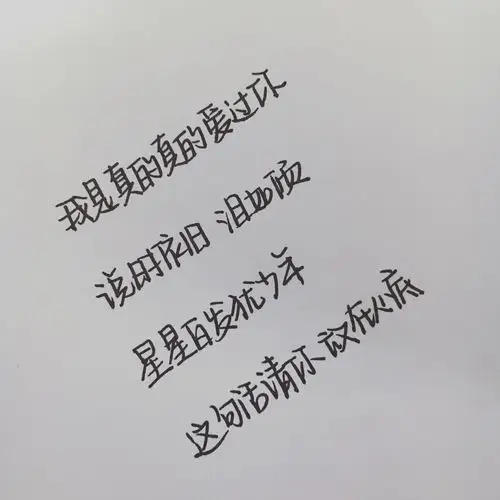 我是真的真的爱过你
说时依旧 泪如倾
星星白发犹少年
这句话请你放在心底